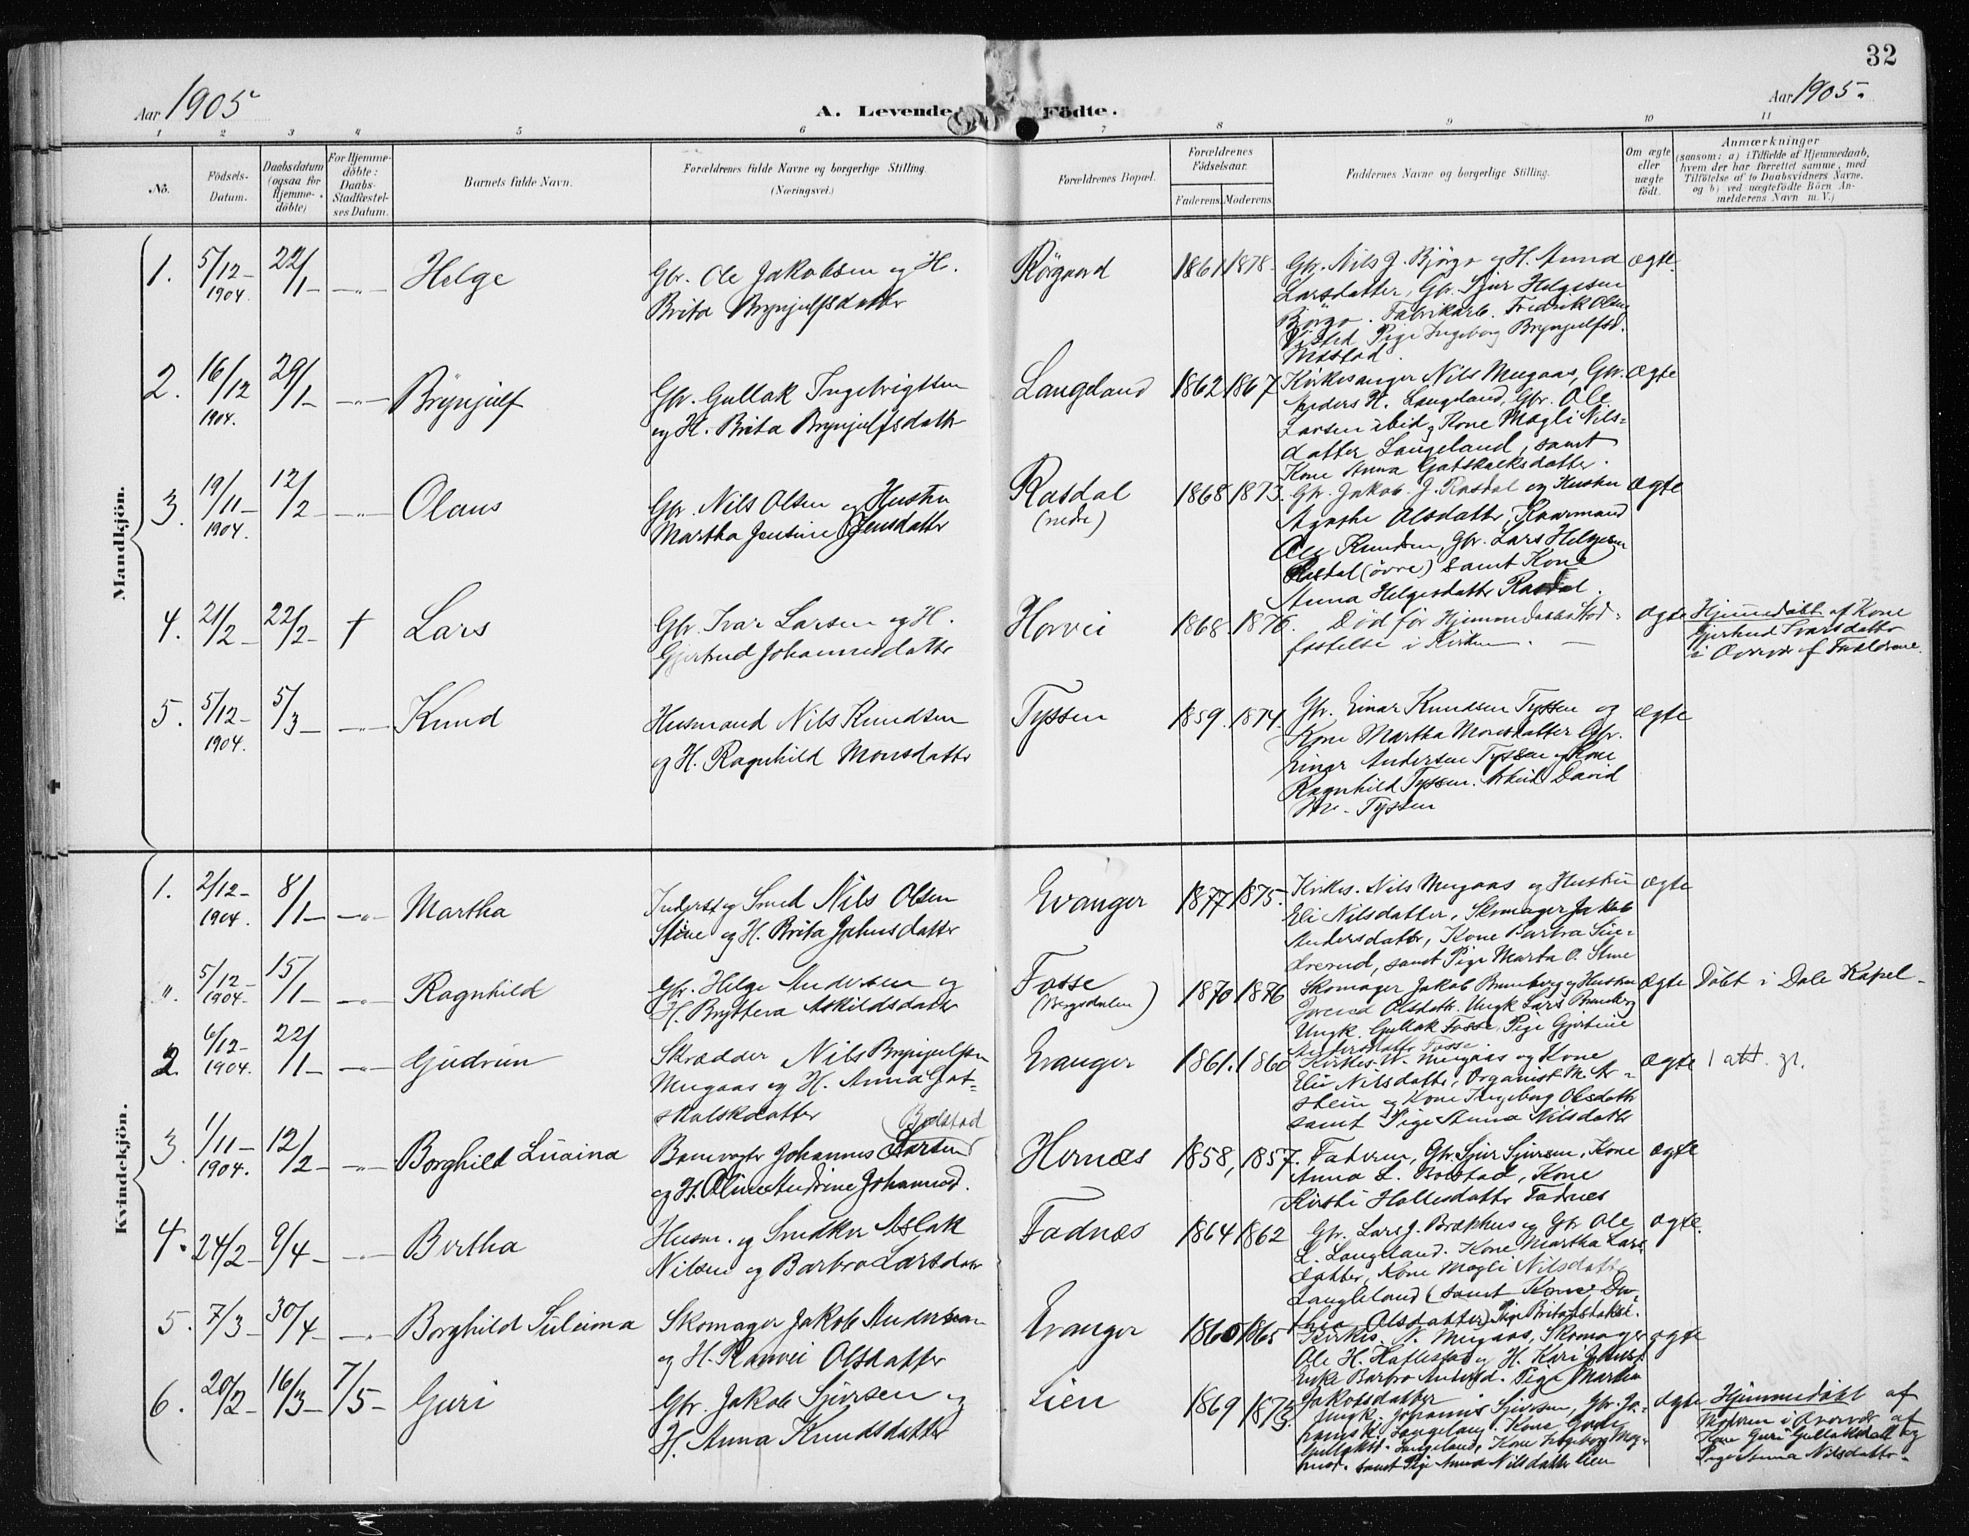 32
Aar 1905
A. Levende Födte.
Aar 1905.
1 2 3 4 5 6 7 8 9 10 11
No.
Födsels-Datum.
Daabsdatum (ogsaa for Hjemme-döbte)
For Hjemme-döbte: Daabs-Stadfæstel-ses Datum.
Barnets fulde Navn.
Forældrenes fulde Navne og borgerlige Stilling. (Næringsvei.)
Forældrenes Bopæl.
Forældrenes Födselsaar.
Faderens. Moderens.
Fadderenes Navne og borgerlige Stilling.
Om ægte eller uægte födt.
Anmærkninger
(saasom: a) i Tilfælde af Hjemmedaab,
hvem der har forrettet samme, med
Tilföielse af to Daabsvidners Navne.
og b) ved uægtefödte Börn An-
melderens Navn m. V.)
Mandkjön.
1. 5/12 1904. 22/1 Helge
Gbr. Ole Jakobsen og H.
Brita Brynjulfsdatter
Rörgaard 1861 1878.
Gbr. Nils J. Björgo og H. Anna
Larsdatter, Gbr. Sjur Helgesen
Björgo. Fabrikarb. Fredrik Olsen
Pige Ingeborg Brynjulfsd.
Mæstad.
ægte.
2. 16/12 1904. 29/1 Brynjulf
Gbr. Gullak Ingebrigtsen
og H. Brita Brynjulfsdattr
Langeland 1862 1867
Kirkesanger Nils Mugaas, Gbr.
Anders H. Langeland, Gbr. Ole
Larsen ibid, Kone Magli Nils-
datter Langeland, samt
Kone Anna Gotskalksdatter.
ægte
3. 19/11 1904. 12/2 Olaus
Gbr. Nils Olsen og Hustru
Martha Jensine Jensdatter
Rasdal (nedre) 1868 1873.
Gbr. Jakob J. Rasdal og Hustru
Agathe Olsdatter, Kaarmand
Ole Knudsen, Gbr. Lars Helgesen
Rasdal (övre) samt Kone
Anna Helgesdatter Rasdal.
ægte
4. 21/2 22/2 † Lars
Gbr. Ivar Larsen og H.
Gjertrud Johannesdattr
Horvei 1868. 1876.
Död för Hjemmedaabs Stad-
fæstelse i Kirken.
ægte
Hjemmedöbt af Kone
Gjertrud Ivarsdatter
i Overvær af Forældrene.
5. 5/12 1904. 5/3 Knud
Husmand Nils Knudsen
og H. Ragnhild Monsdattr
Tyssen 1859. 1874.
Gbr. Einar Knudsen Tyssen og
Kone Martha Monsdatter Gbr.
Einar Andersen Tyssen og Kone
Ragnhild Tyssen. Arbeid. David
Tyssen
ægte
Kvindekjön.
1. 2/12 1904. 8/1 Martha
Inderst og Smed Nils Olsen
Stine og H. Brita Jahnsdatter
Evanger 1877 1875.
Kirkes. Nils Mugaas og Hustru
Eli Nilsdatter, Skomager Jakob
Andersdattr, Kone Barbra
samt Pige Marta O. Stine
ægte
". 5/12 1904. 15/1 Ragnhild
Gbr. Helge Andersen og
H. Brytteva Askildsdatter
Fosse (Bergsdalen) 1870 1876
Skomager Jakob Brunborg og Hustru
Olsdattr. Ungk. Lars Brunborg
Ungk. Gullak Fosse, Pige Gjertine
Andersdattr Fosse.
ægte
Döbt i Dale Kapel.
2. 6/12 1904. 22/1 Gudrun
Skrædder Nils Brynjulfsen
Mugaas og H. Anna Got-
skalksdatter
Evanger 1861. 1860
Kirkes. N. Mugaas og Kone
Eli Nilsdattr, Organist M. Ar-
stein og Kone Ingeborg Olsdattr
samt Pige Anna Nilsdattr
ægte
1 att. gr.
3. 1/11 1904. 12/2 Borghild Lucina
Banevogter Johannes Larsen Bolstad
og H. Oline Andrine Johannesd.
Hernæs 1858, 1857.
Faderen, Gbr. Sjur Sjursen, Kone
Anna L. Bolstad, Kone
Kirsti Hallesdattr Fadnes
ægte
4. 24/2 9/4 Bertha
Husm. og Snedker Aslak
Nilsen og Barbro Larsdatr
Fadnæs 1864 1862
Gbr. Lars J. Brækhus og Gbr Ole
L. Langeland. Kone Martha Lars-
datter, Kone Magli Nilsdatter
Langeland (samt Kone Do-
thea Olsdatter) Pige Brita
ægte.
5. 7/3 30/4 Borghild Sulima
Skomager Jakob Andersen
og H. Ranvei Olsdatter
Evanger 1860 1865
Kirkes. N. Mugaas, Skomager
Ole H. Haflestad og H. Kari
Enke Barbro Andersd. Pige Martha
Jakobsdatter
ægte
6. 20/2 16/3 7/5 Guri
Gbr. Jakob Sjursen og
H. Anna Knudsdatter
Lien 1869 1873.
Ungk. Johannes Sjursen, Gbr. Jo-
hannes K. Langeland, Kone Guri
Gullaksd. Langeland, Kone Ingeborg Mag-
nusd. samt Pige Anna Nilsdatter Lien
ægte
Hjemmedöbt af
Moderen i Overvær af
Kone Guri Gullaksdatt og
Pige Anna Nilsdattr.